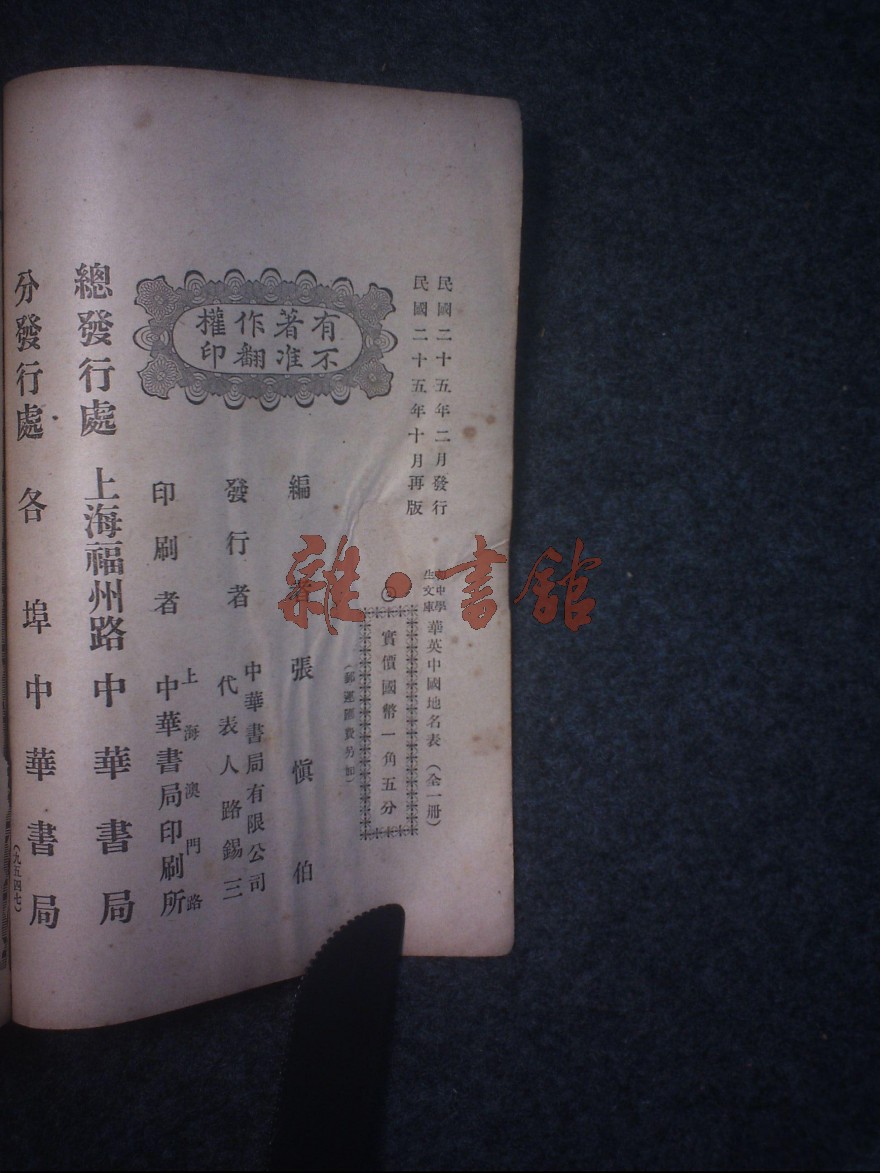 民國二十五年二月發行
民國二十五年十月再版
中學
生文庫
華英中國地名表（全一册）
實價國幣一角五分
（郵運匯費另加）
有著作權
不准翻印
編者 張愼伯
發行者 中華書局有限公司
代表人路錫三
印刷者 上海澳門路
中華書局印刷所
總發行處 上海福州路 中華書局
分發行處 各埠中華書局
（九五四七）
雜·書館